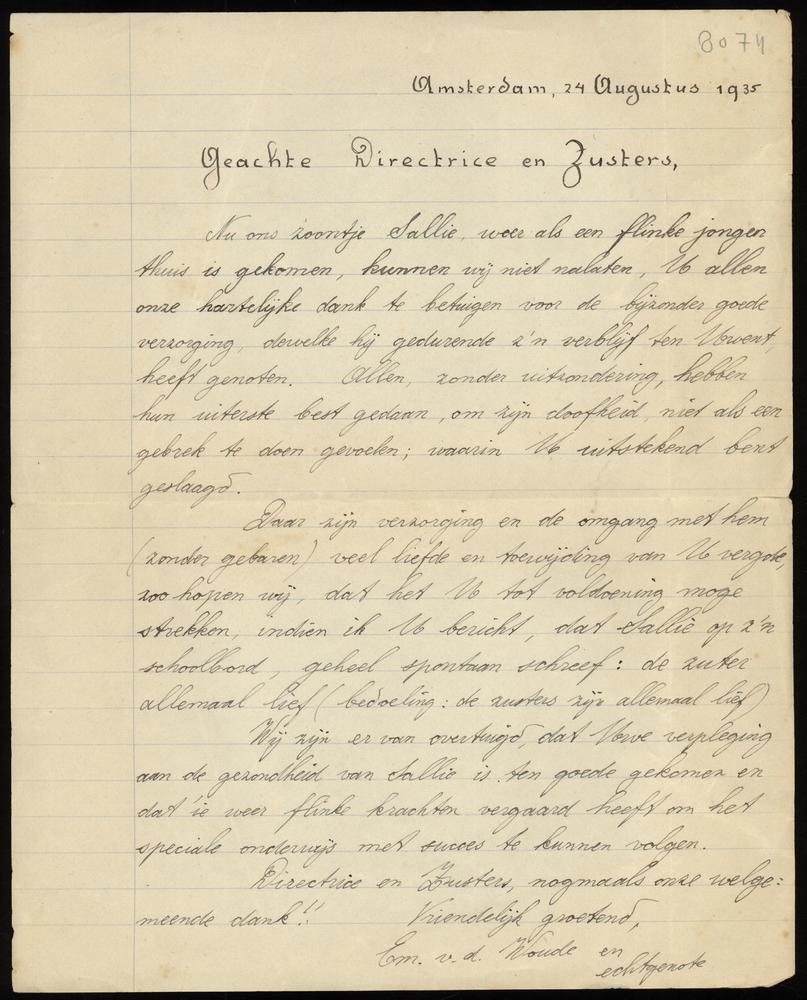 8074
Amsterdam, 24 Augustus 1935
Geachte Directrice en Zusters,
Nu ons zoontje Sallie, weer als een flinke jongen
thuis is gekomen, kunnen wij niet nalaten, U allen
onze hartelijke dank te betuigen voor de bijzonder goede
verzorging, dewelke hij gedurende z'n verblijf ten Uwent,
heeft genoten. Allen, zonder uitzondering, hebben
hun uiterste best gedaan, om zijn doofheid, niet als een
gebrek te doen gevoelen; waarin U uitstekend bent
geslaagd.
Daar zijn verzorging en de omgang met hem
(zonder gebaren) veel liefde en toewijding van U vergde,
zoo hopen wij, dat het U tot voldoening moge
strekken, indien ik U bericht, dat Sallie op z'n
schoolbord, geheel spontaan schreef: de zuter
allemaal lief (bedoeling: de zusters zijn allemaal lief)
Wij zijn er van overtuigd, dat Uwe verpleging
aan de gezondheid van Sallie is ten goede gekomen en
dat ie weer flinke krachten vergaard heeft om het
speciale onderwijs met succes te kunnen volgen.
Directrice en Zusters, nogmaals onze welge=
meende dank!! Vriendelijk groetend,
Em. v. d. Woude en
echtgenote